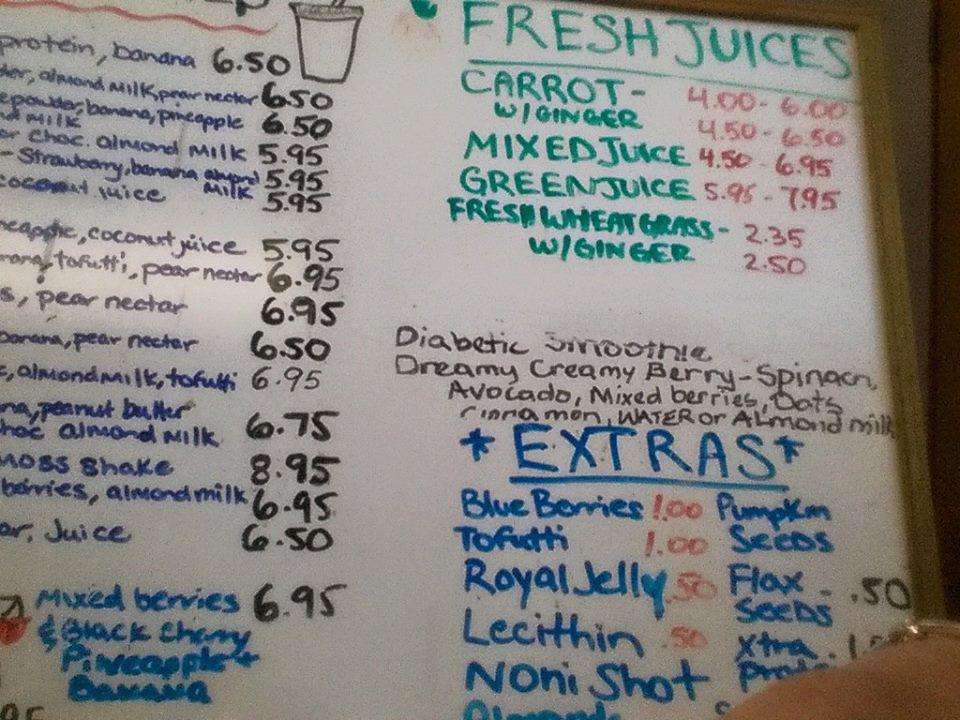 protein, banana 6.50
almond milk, pear nectar 6.50
powder, banana, pineapple 6.50
milk
or choc. almond milk 5.95
- Strawberry, banana almond 5.95
milk
coconut juice 5.95
coconut juice 5.95
tofutti, pear nectar 6.95
s, pear nectar 6.95
banana, pear nectar 6.50
almond milk, tofutti 6.95
peanut butter
choc almond milk 6.75
moss shake 8.95
berries, almond milk 6.95
Juice 6.50
Mixed berries 6.95
& Black cherry
Pineapple +
Banana
FRESH JUICES
CARROT - 4.00 - 6.00
W/GINGER 4.50 - 6.50
MIXED JUICE 4.50 - 6.95
GREEN JUICE 5.95 - 7.95
FRESH WHEATGRASS - 2.35
W/GINGER 2.50
Diabetic Smoothie
Dreamy Creamy Berry - Spinach,
Avocado, Mixed berries, Oats,
Cinnamon, WATER or Almond milk
* EXTRAS *
Blue Berries 1.00
Tofutti 1.00
Royal Jelly .50
Lecithin .50
Noni Shot
Pumpkin
Seeds
Flax - .50
Seeds
Xtra